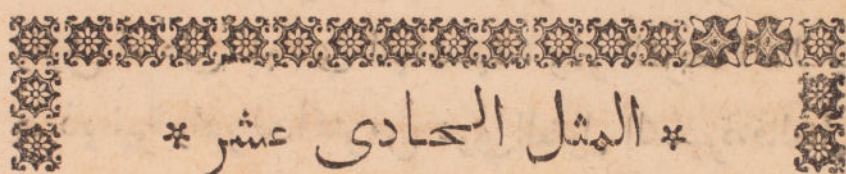 * المثل الحادى عشر *